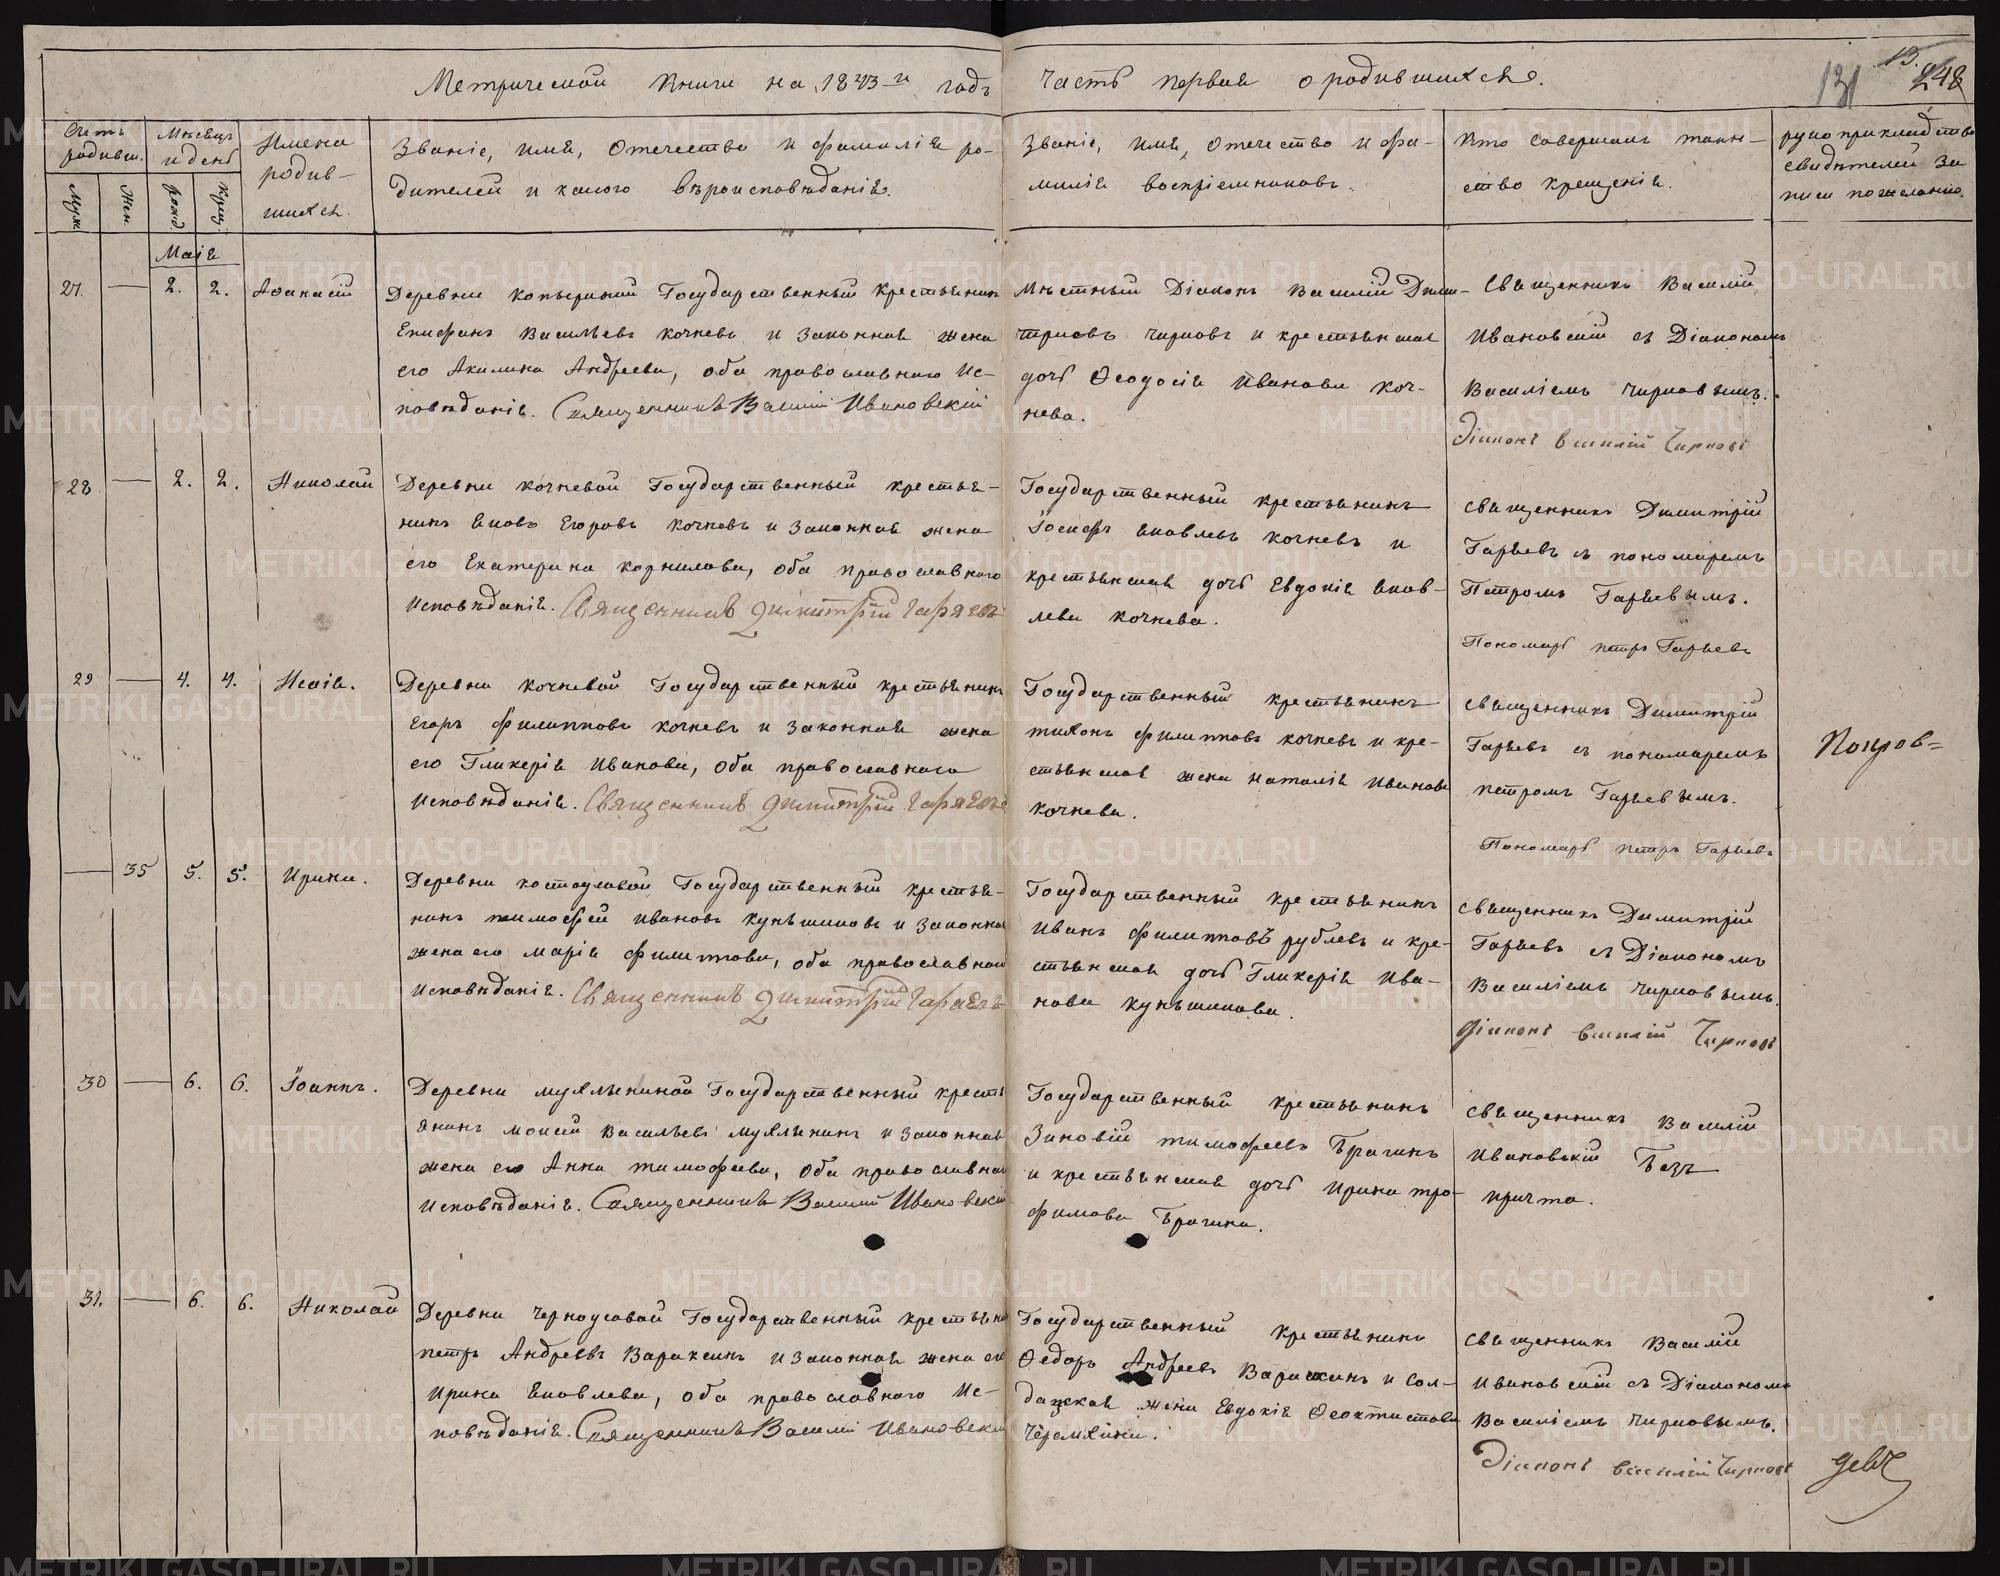 Метрической книги на 1843-й годъ
часть первая о родившихся.
131
13.
248
Счетъ родивш.
Муж.
Жен.
Мѣсяцъ и день
рожд
крещ.
Имена
родив-
шихся.
Званіе, имя, отечество и фамилія ро-
дителей и какого вѣроисповѣданія.
Званіе, имя, отечество и фа-
милія воспріемниковъ.
Кто совершалъ таин-
ство крещенія.
рукоприкладство
свидѣтелей за
писи по желанію.
Маія
27. — 2. 2. Аѳанасій
Деревни Государственный крестьянинъ
Епифанъ Васильевъ Кочневъ и законная жена
его Акилина Андреева, оба православнаго ис-
повѣданія. Священникъ Василій Ивановскій
Мѣстный Діаконъ Василій Дими-
тріевъ Чирковъ и крестьянская
дочь Ѳеодосія Иванова Коч-
нева.
Священникъ Василій
Ивановскій съ Діакономъ
Василіемъ Чирковымъ.
Діаконъ Василій Чирковъ
28 — 2. 2. Николай
Деревни Кочневой Государственный крестья-
нинъ Яковъ Егоровъ Кочневъ и законная жена
его Екатерина Корнилова, оба православнаго
исповѣданія. Священникъ Димитрій Гаряевъ
Государственный крестьянинъ
Іосифъ Яковлевъ Кочневъ и
крестьянская дочь Евдокія Яков-
лева Кочнева.
Священникъ Димитрій
Гаряевъ съ пономаремъ
Петромъ Гаряевымъ.
Пономарь Петръ Гаряевъ
29 — 4. 4. Исаія.
Деревни Кочневой Государственный крестьянинъ
Егоръ Филипповъ Кочневъ и законная жена
его Гликерія Иванова, оба православнаго
исповѣданія. Священникъ Димитрій Гаряевъ
Государственный крестьянинъ
Тихонъ Филипповъ Кочневъ и кре-
стьянская жена Наталія Иванова
Кочнева.
Священникъ Димитрій
Гаряевъ съ пономаремъ
Петромъ Гаряевымъ.
Пономарь Петръ Гаряевъ
Покров=
— 35 5. 5. Ирина.
Деревни Костоусовой Государственный крестья-
нинъ Тимофей Ивановъ Куньщиковъ и законная
жена его Марія Филиппова, оба православнаго
исповѣданія. Священникъ Димитрій Гаряевъ
Государственный крестьянинъ
Иванъ Филипповъ Рублевъ и кре-
стьянская дочь Гликерія Ива-
нова Куньщикова.
Священникъ Димитрій
Гаряевъ съ Діакономъ
Василіемъ Чирковымъ.
Діаконъ Василій Чирковъ
30 — 6. 6. Іоаннъ.
Деревни Мухлыниной Государственный кресть
янинъ Моисей Васильевъ Мухлынинъ и законная
жена его Анна Тимофеева, оба православнаго
исповѣданія. Священникъ Василій Ивановскій
Государственный крестьянинъ
Зиновій Тимофеевъ Брагинъ
и крестьянская дочь Ирина Тро-
фимова Брагина.
Священникъ Василій
Ивановскій Безъ
причта.
31. — 6. 6. Николай
Деревни Черноусовой Государственный крестьянинъ
Петръ Андреевъ Вараксинъ и законная жена его
Ирина Яковлева, оба православнаго ис-
повѣданія. Священникъ Василій Ивановскій
Государственный крестьянинъ
Ѳедоръ Андреевъ Вараксинъ и сол-
датская жена Евдокія Ѳеоктистова
Черемхина.
Священникъ Василій
Ивановскій съ Діакономъ
Василіемъ Чирковымъ.
Діаконъ Василій Чирковъ
METRIKI.GASO-URAL.RU